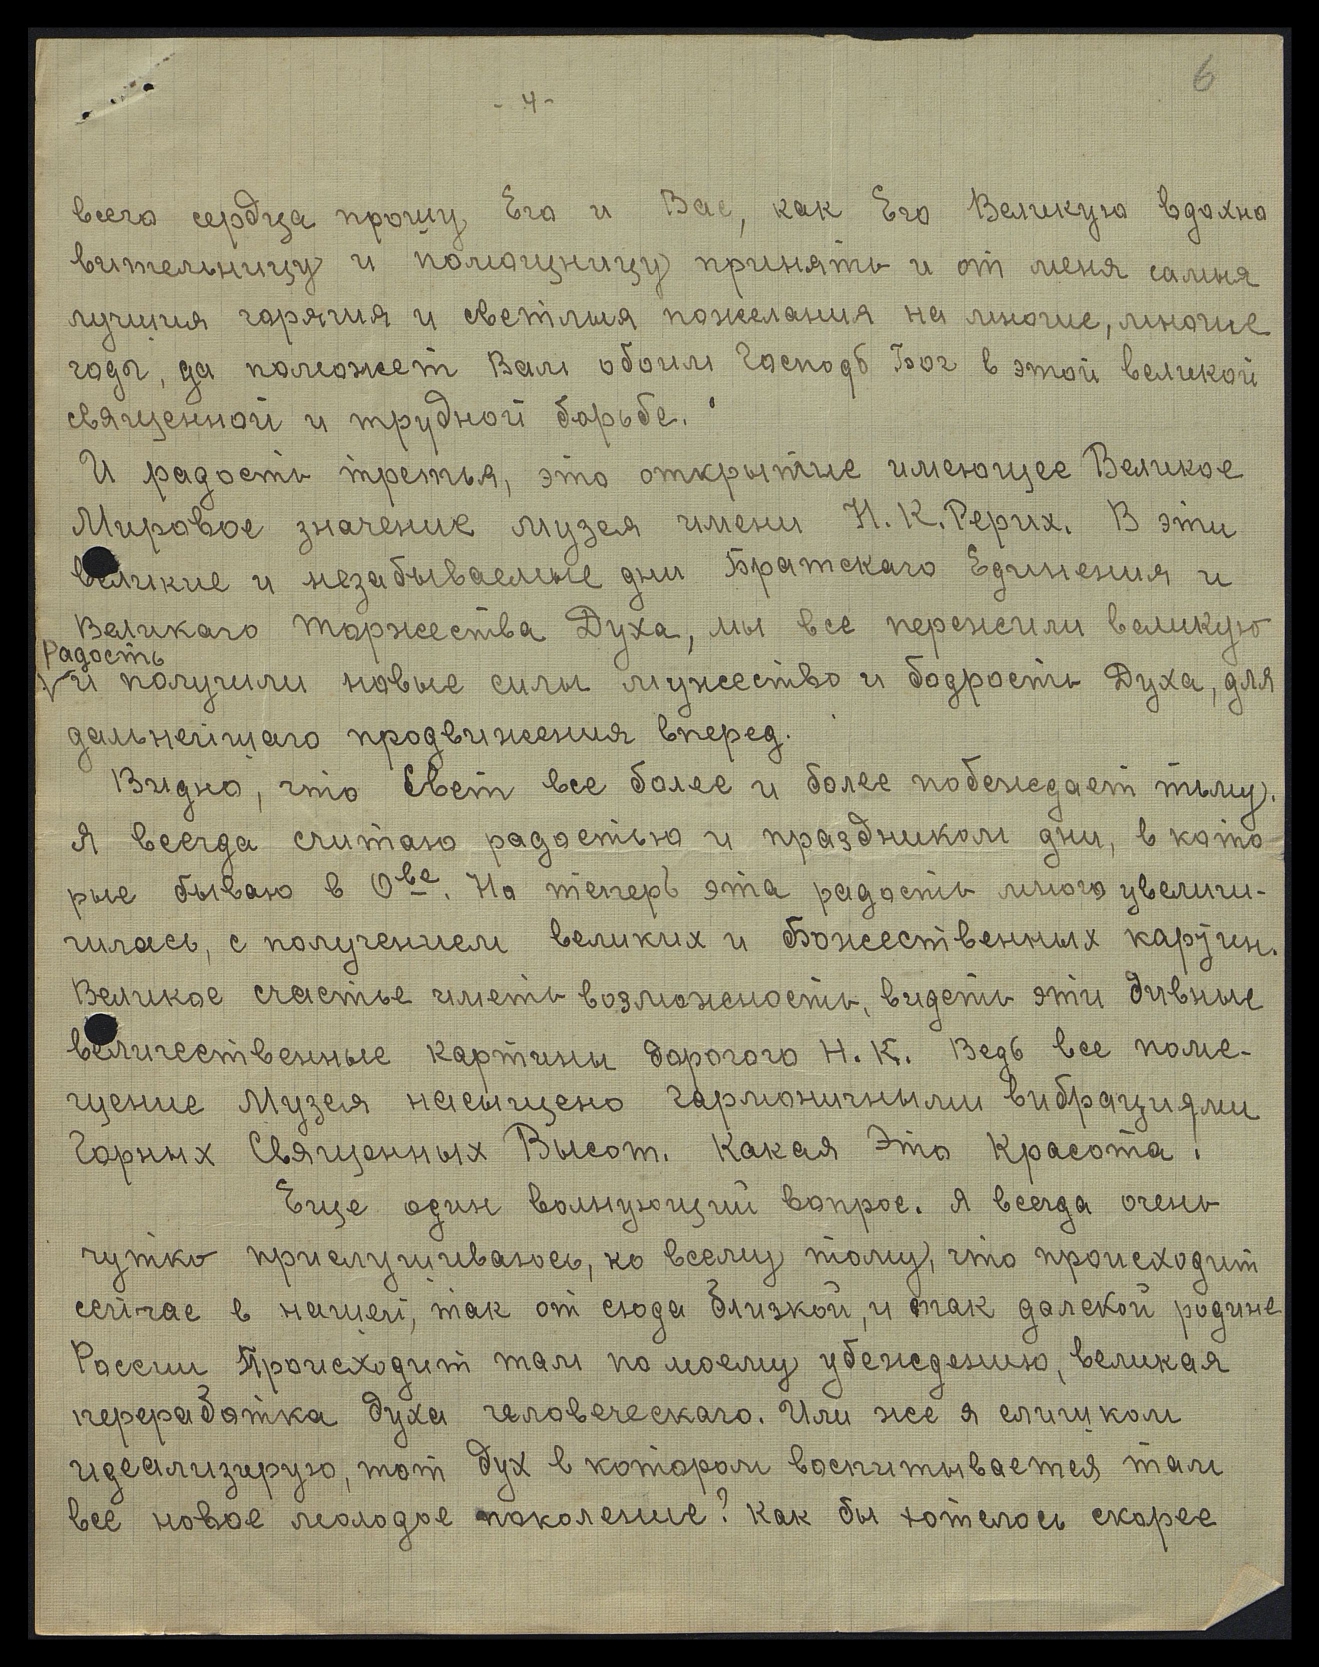 6
- 4 -
всего сердца прошу Его и Вас, как Его Великую вдохно
вительницу и помощницу принять и от меня самыя
лучшия горячия и светлыя пожелания на многие, многие
годы, да поможет Вам обоим Господь Бог в этой великой
священной и трудной борьбе.
И радость третья, это открытие имеющее Великое
Мировое значение музея имени Н. К. Рерих. В эти
великие и незабываемые дни Братскаго Единения и
Великаго торжества Духа, мы все пережили великую
Радость
и получили новые силы мужество и бодрость Духа, для
дальнейшаго продвижения вперед.
Видно, что Свет все более и более побеждает тьму.
Я всегда считаю радостью и праздником дни, в кото
рые бываю в О-ве. Но теперь эта радость много увели-
чилась, с получением великих и Божественных картин.
Великое счастье иметь возможность, видеть эти дивные
величественные картины дорогого Н. К. Ведь все поме-
щение Музея насыщено гармоничными вибрациями
Горных Священных Высот. Какая Это Красота!
Еще один волнующий вопрос. Я всегда очень
чутко прислушиваюсь, ко всему тому, что происходит
сейчас в нашей, так от сюда близкой, и так далекой родине
России Происходит там по моему убеждению, великая
переработка духа человеческаго. Или же я слишком
идеализирую, тот дух в котором воспитывается там
все новое молодое поколение? Как бы хотелось скорее